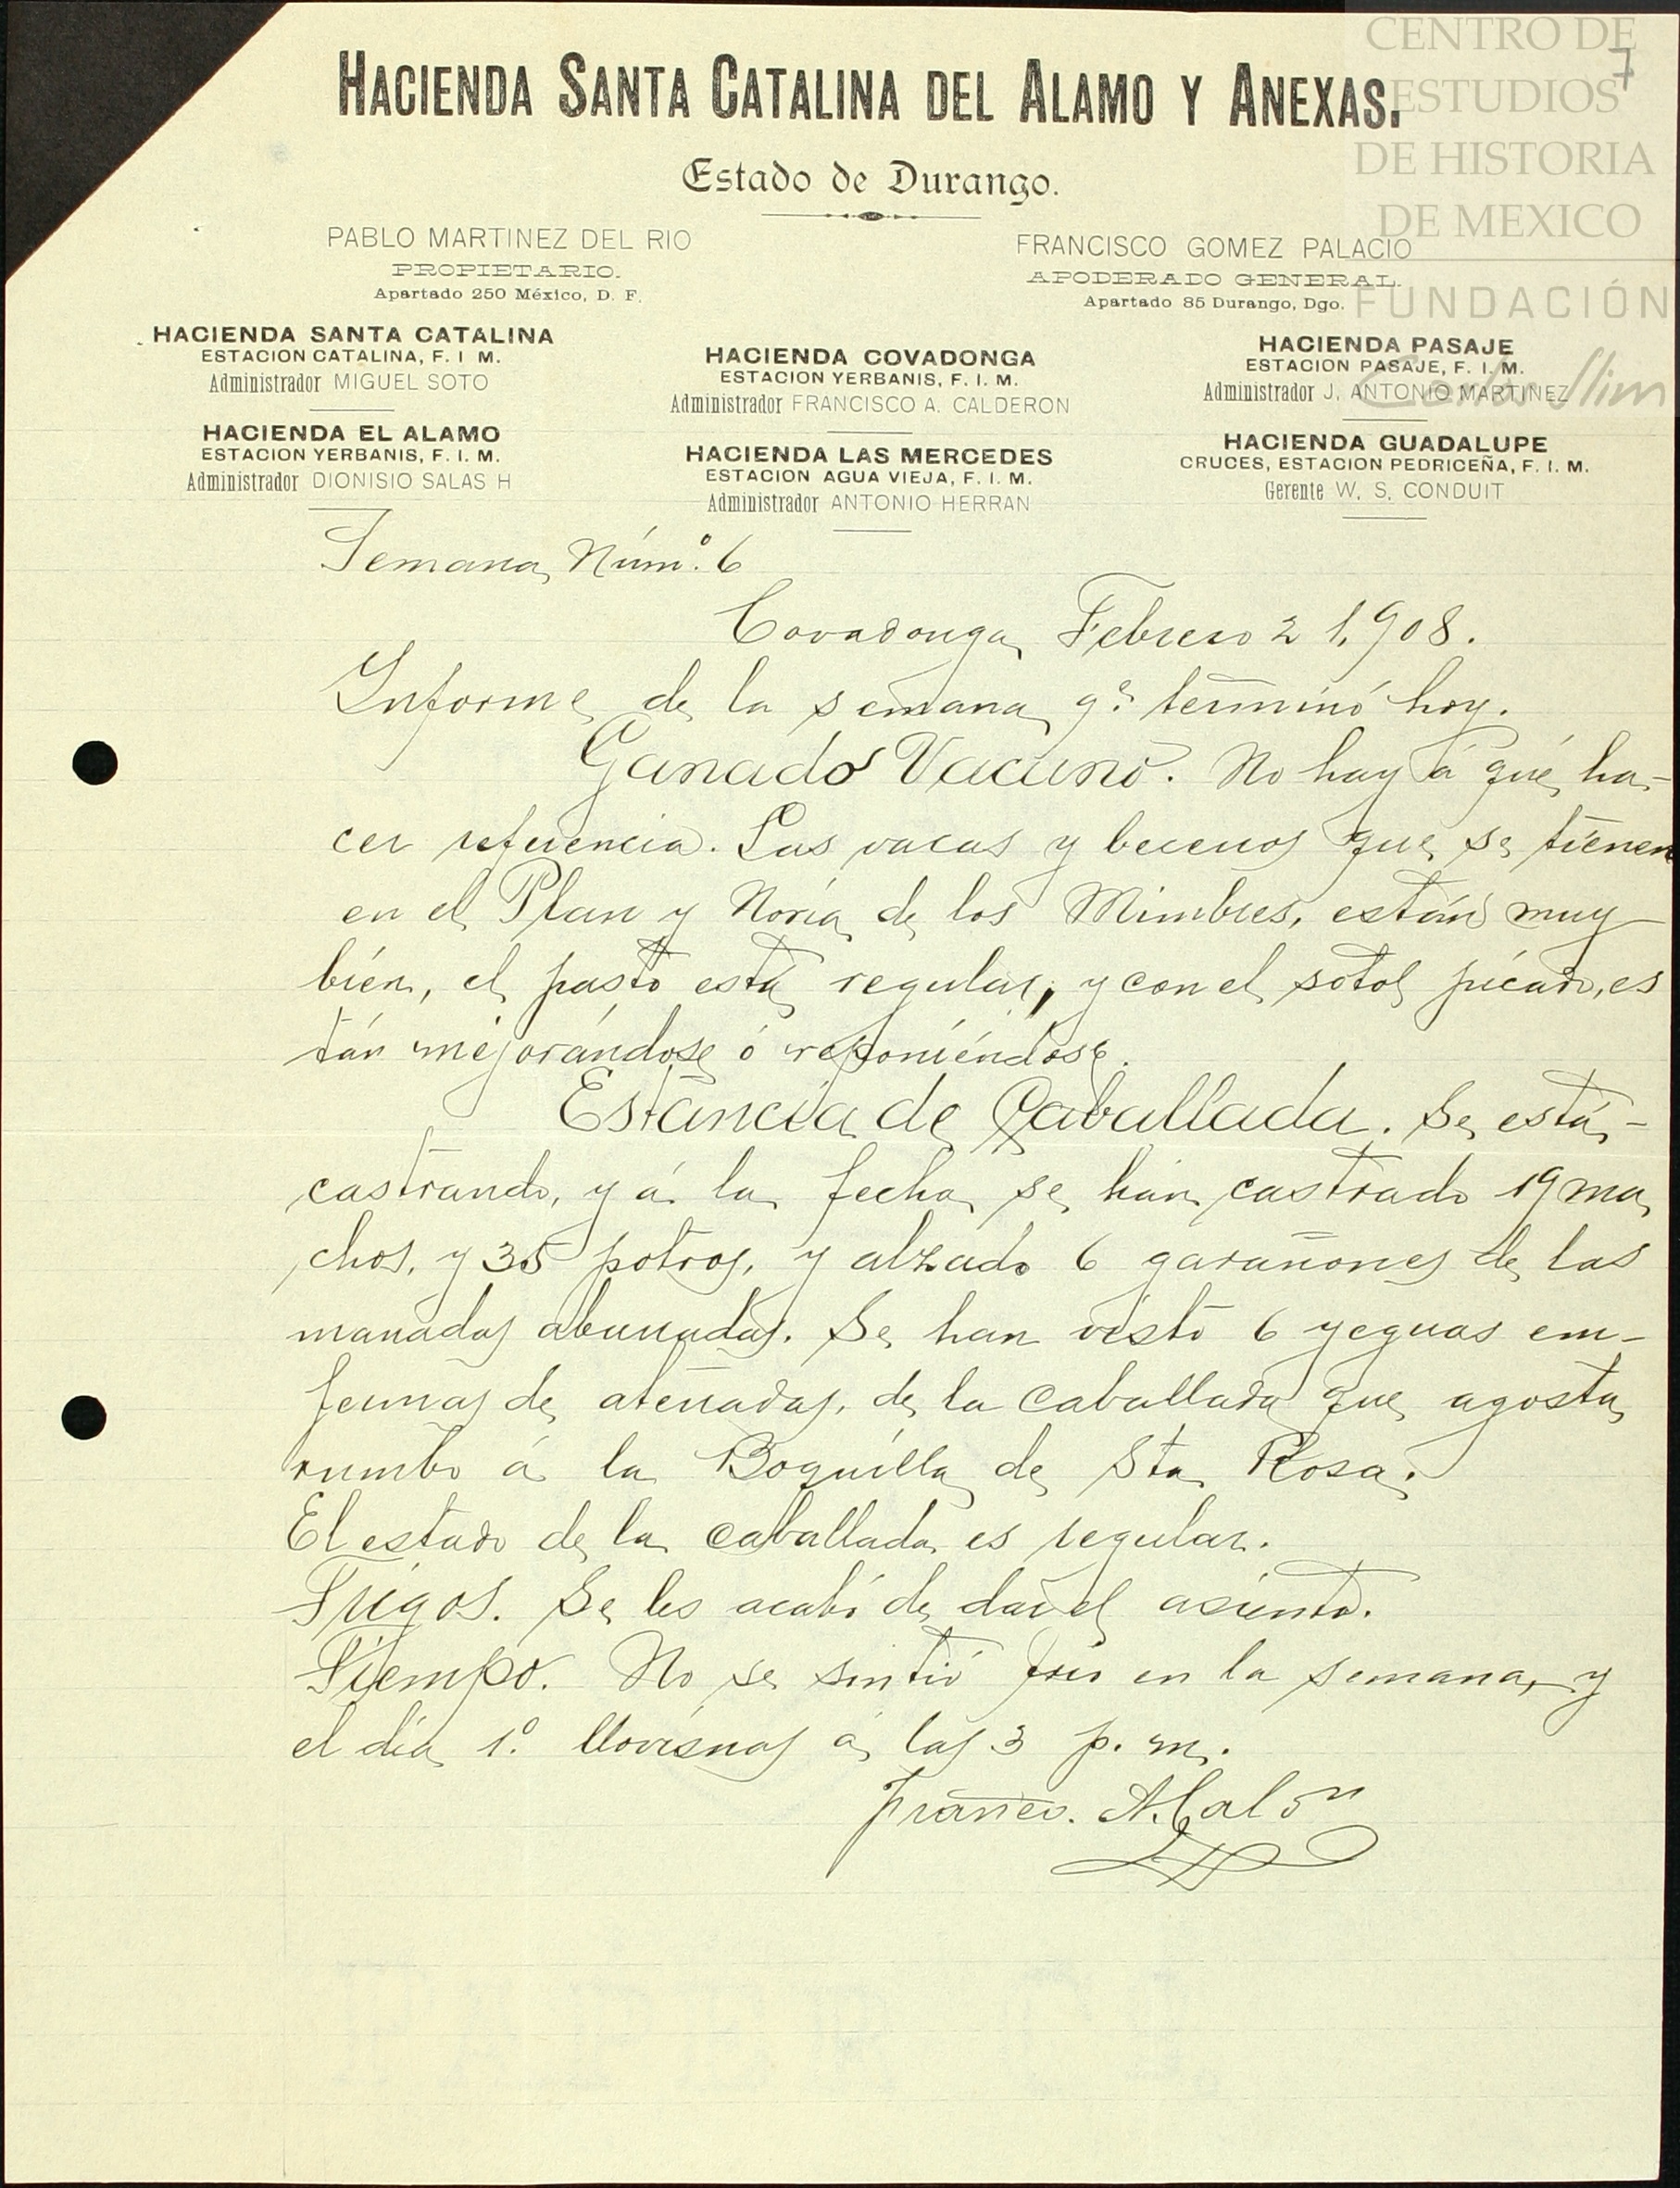 CENTRO DE
ESTUDIOS
DE HISTORIA
DE MEXICO
FUNDACIÓN
Carlos Slim
7
HACIENDA SANTA CATALINA DEL ALAMO Y ANEXAS.
Estado de Durango.
PABLO MARTINEZ DEL RIO
PROPIETARIO.
Apartado 250 México, D. F.
FRANCISCO GOMEZ PALACIO
APODERADO GENERAL.
Apartado 85 Durango, Dgo.
HACIENDA SANTA CATALINA
ESTACION CATALINA, F. I M.
Administrador MIGUEL SOTO
HACIENDA EL ALAMO
ESTACION YERBANIS, F. I. M.
Administrador DIONISIO SALAS H
HACIENDA COVADONGA
ESTACION YERBANIS, F. I. M.
Administrador FRANCISCO A. CALDERON
HACIENDA LAS MERCEDES
ESTACION AGUA VIEJA, F. I. M.
Administrador ANTONIO HERRAN
HACIENDA PASAJE
ESTACION PASAJE, F. I. M.
Administrador J. ANTONIO MARTINEZ
HACIENDA GUADALUPE
CRUCES, ESTACION PEDRICEÑA, F. I. M.
Gerente W. S. CONDUIT
Semana Núm.º 6
Covadonga Febrero 2 1,908.
Informe de la semana q.e terminó hoy.
Ganado Vacuno. No hay á qué ha-
cer referencia. Las vacas y becerros que se tienen
en el Plan y Noria de los Mimbres, están muy
bien, el pasto está regular, y con el sotol picado, es
tán mejorándose ó reponiéndose.
Estancia de Caballada. Se está-
castrando, y á la fecha se hán castrado 19 ma
chos, y 35 potros, y alzado 6 garañones de las
manadas aburradas. Se han visto 6 yeguas em-
fermas de aterradas, de la caballada que agosta
rumbo á la Boquilla de Sta Rosa.
El estado de la caballada es regular.
Trigos. Se les acabó de dar el asiento.
Tiempo. No se sintió frio en la semana, y
el día 1.º lloviznas á las 3 p. m.
Franco. A. Calón